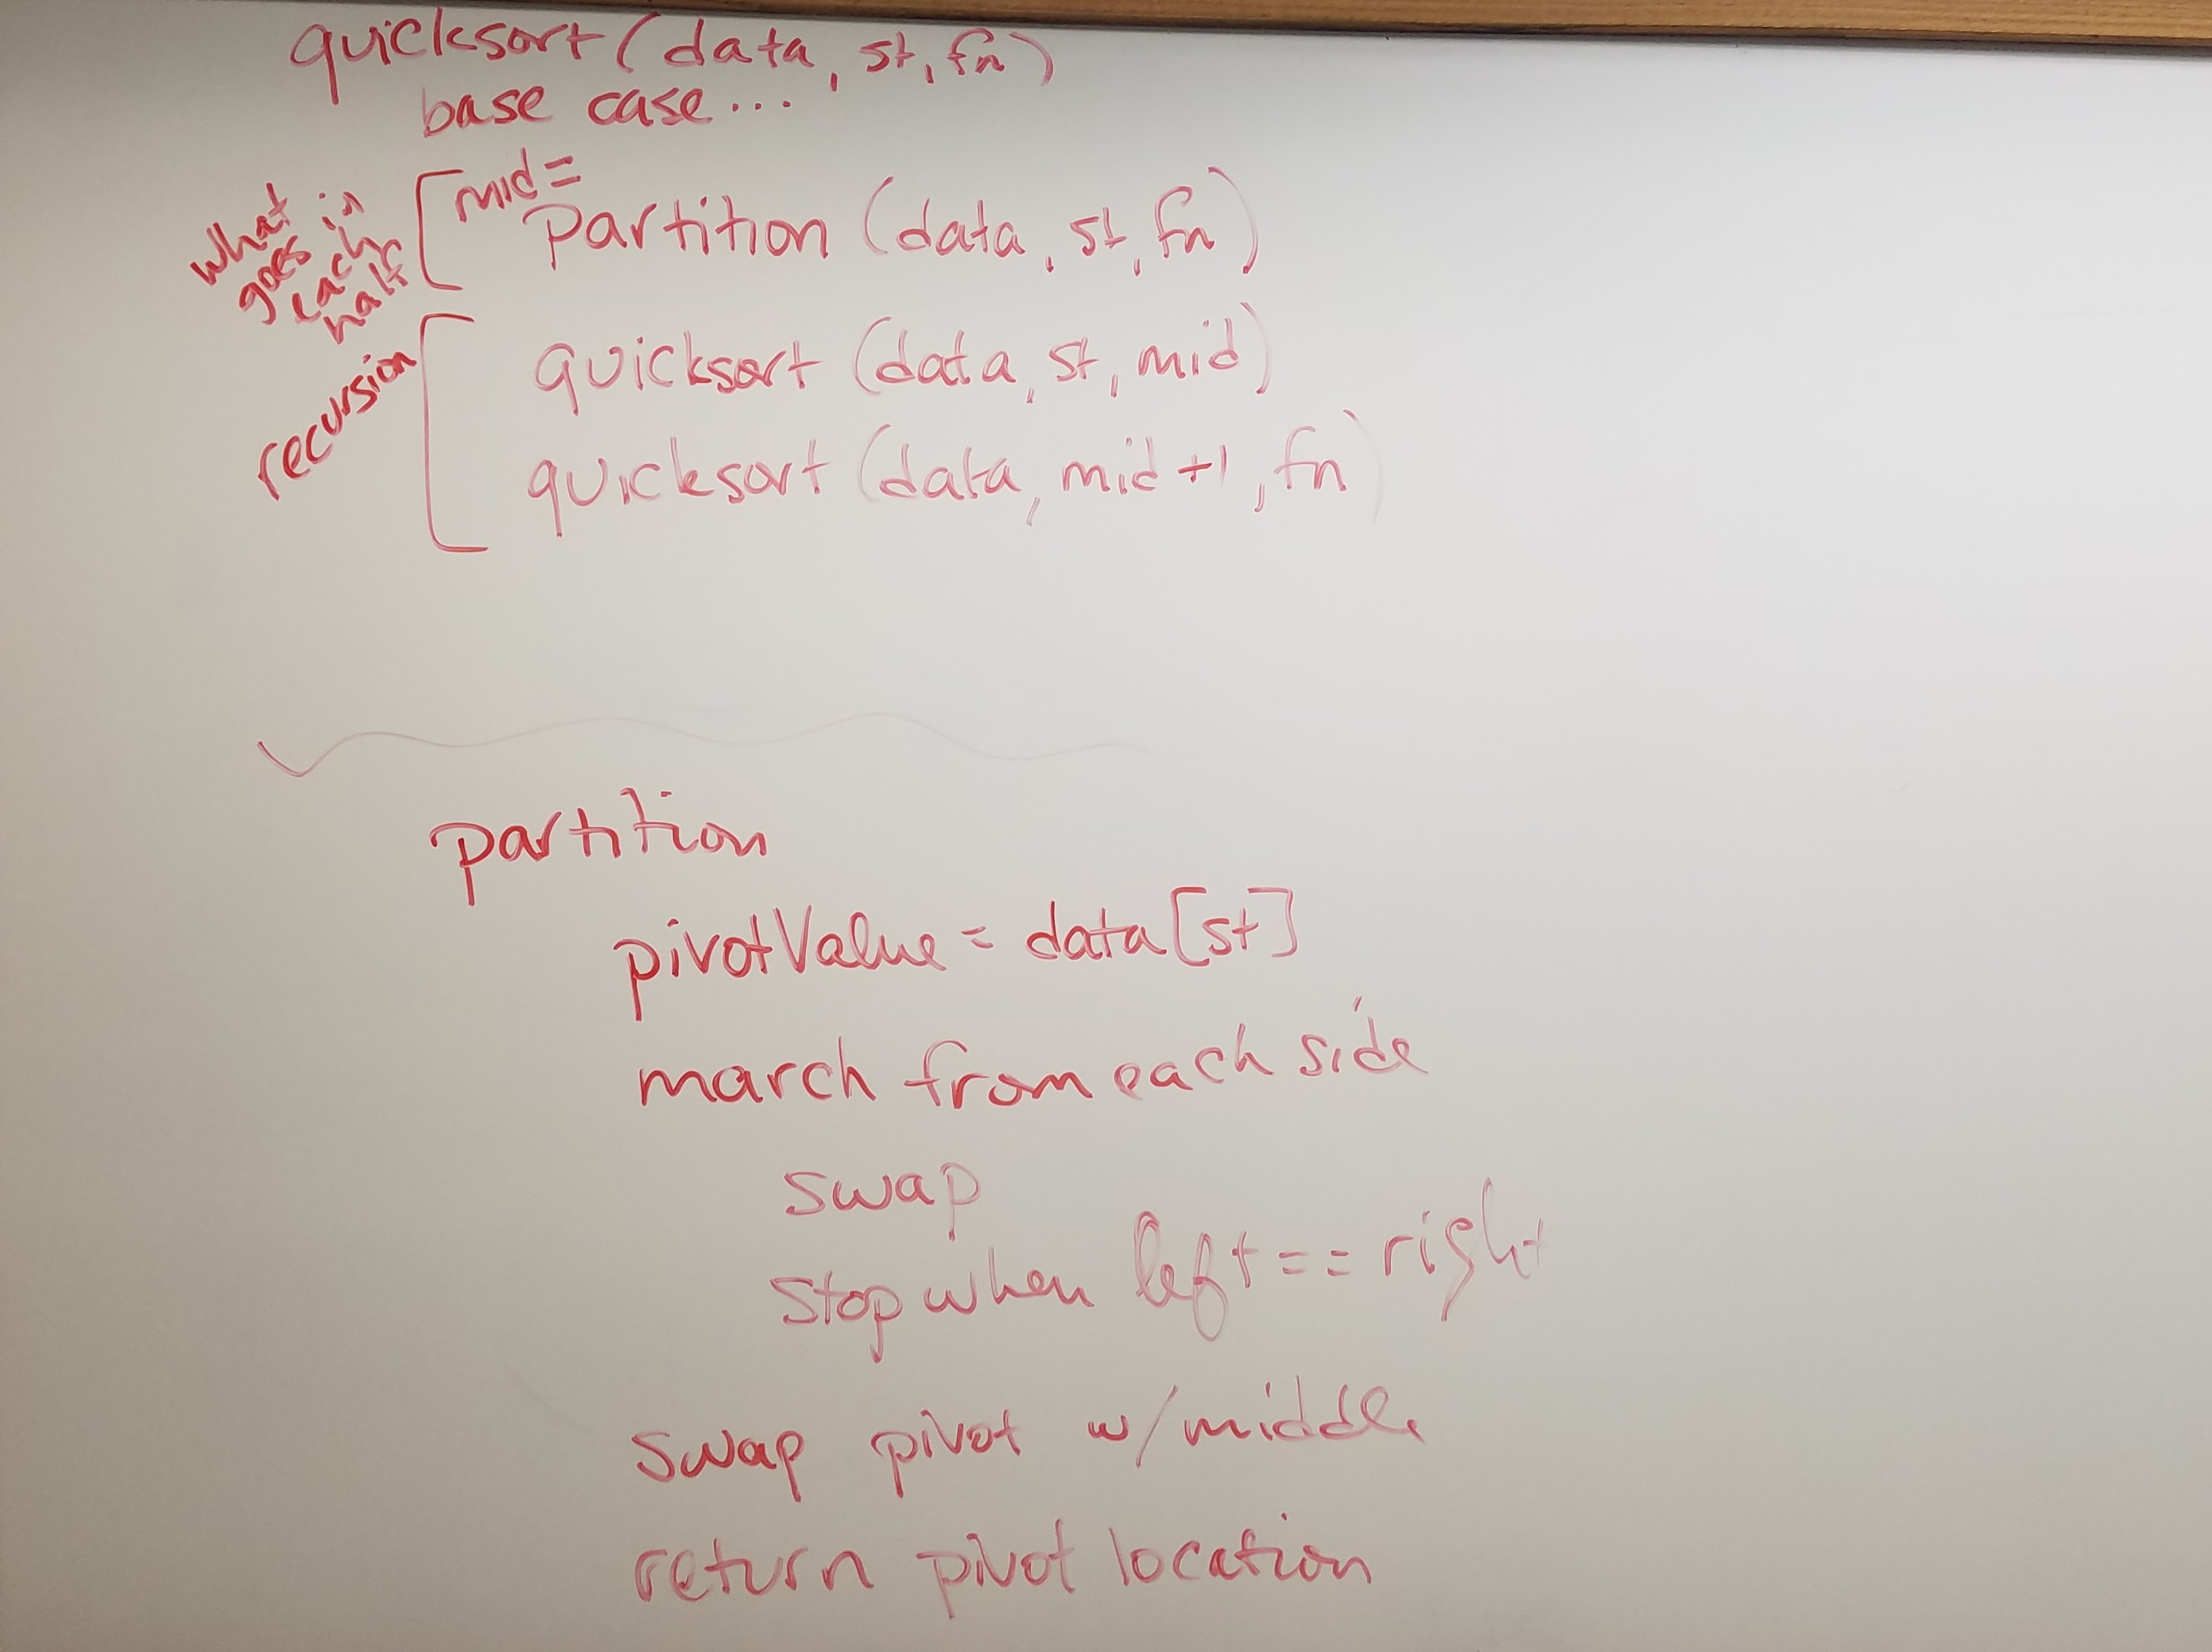 quicksort(data, st, fn)
base case...
what goes in each half
mid=
partition (data, st, fn)
recursion
quicksort (data, st, mid)
quicksort (data, mid+1, fn)
partition
pivotValue = data[st]
march from each side
swap
stop when left == right
swap pivot w/ middle
return pivot location